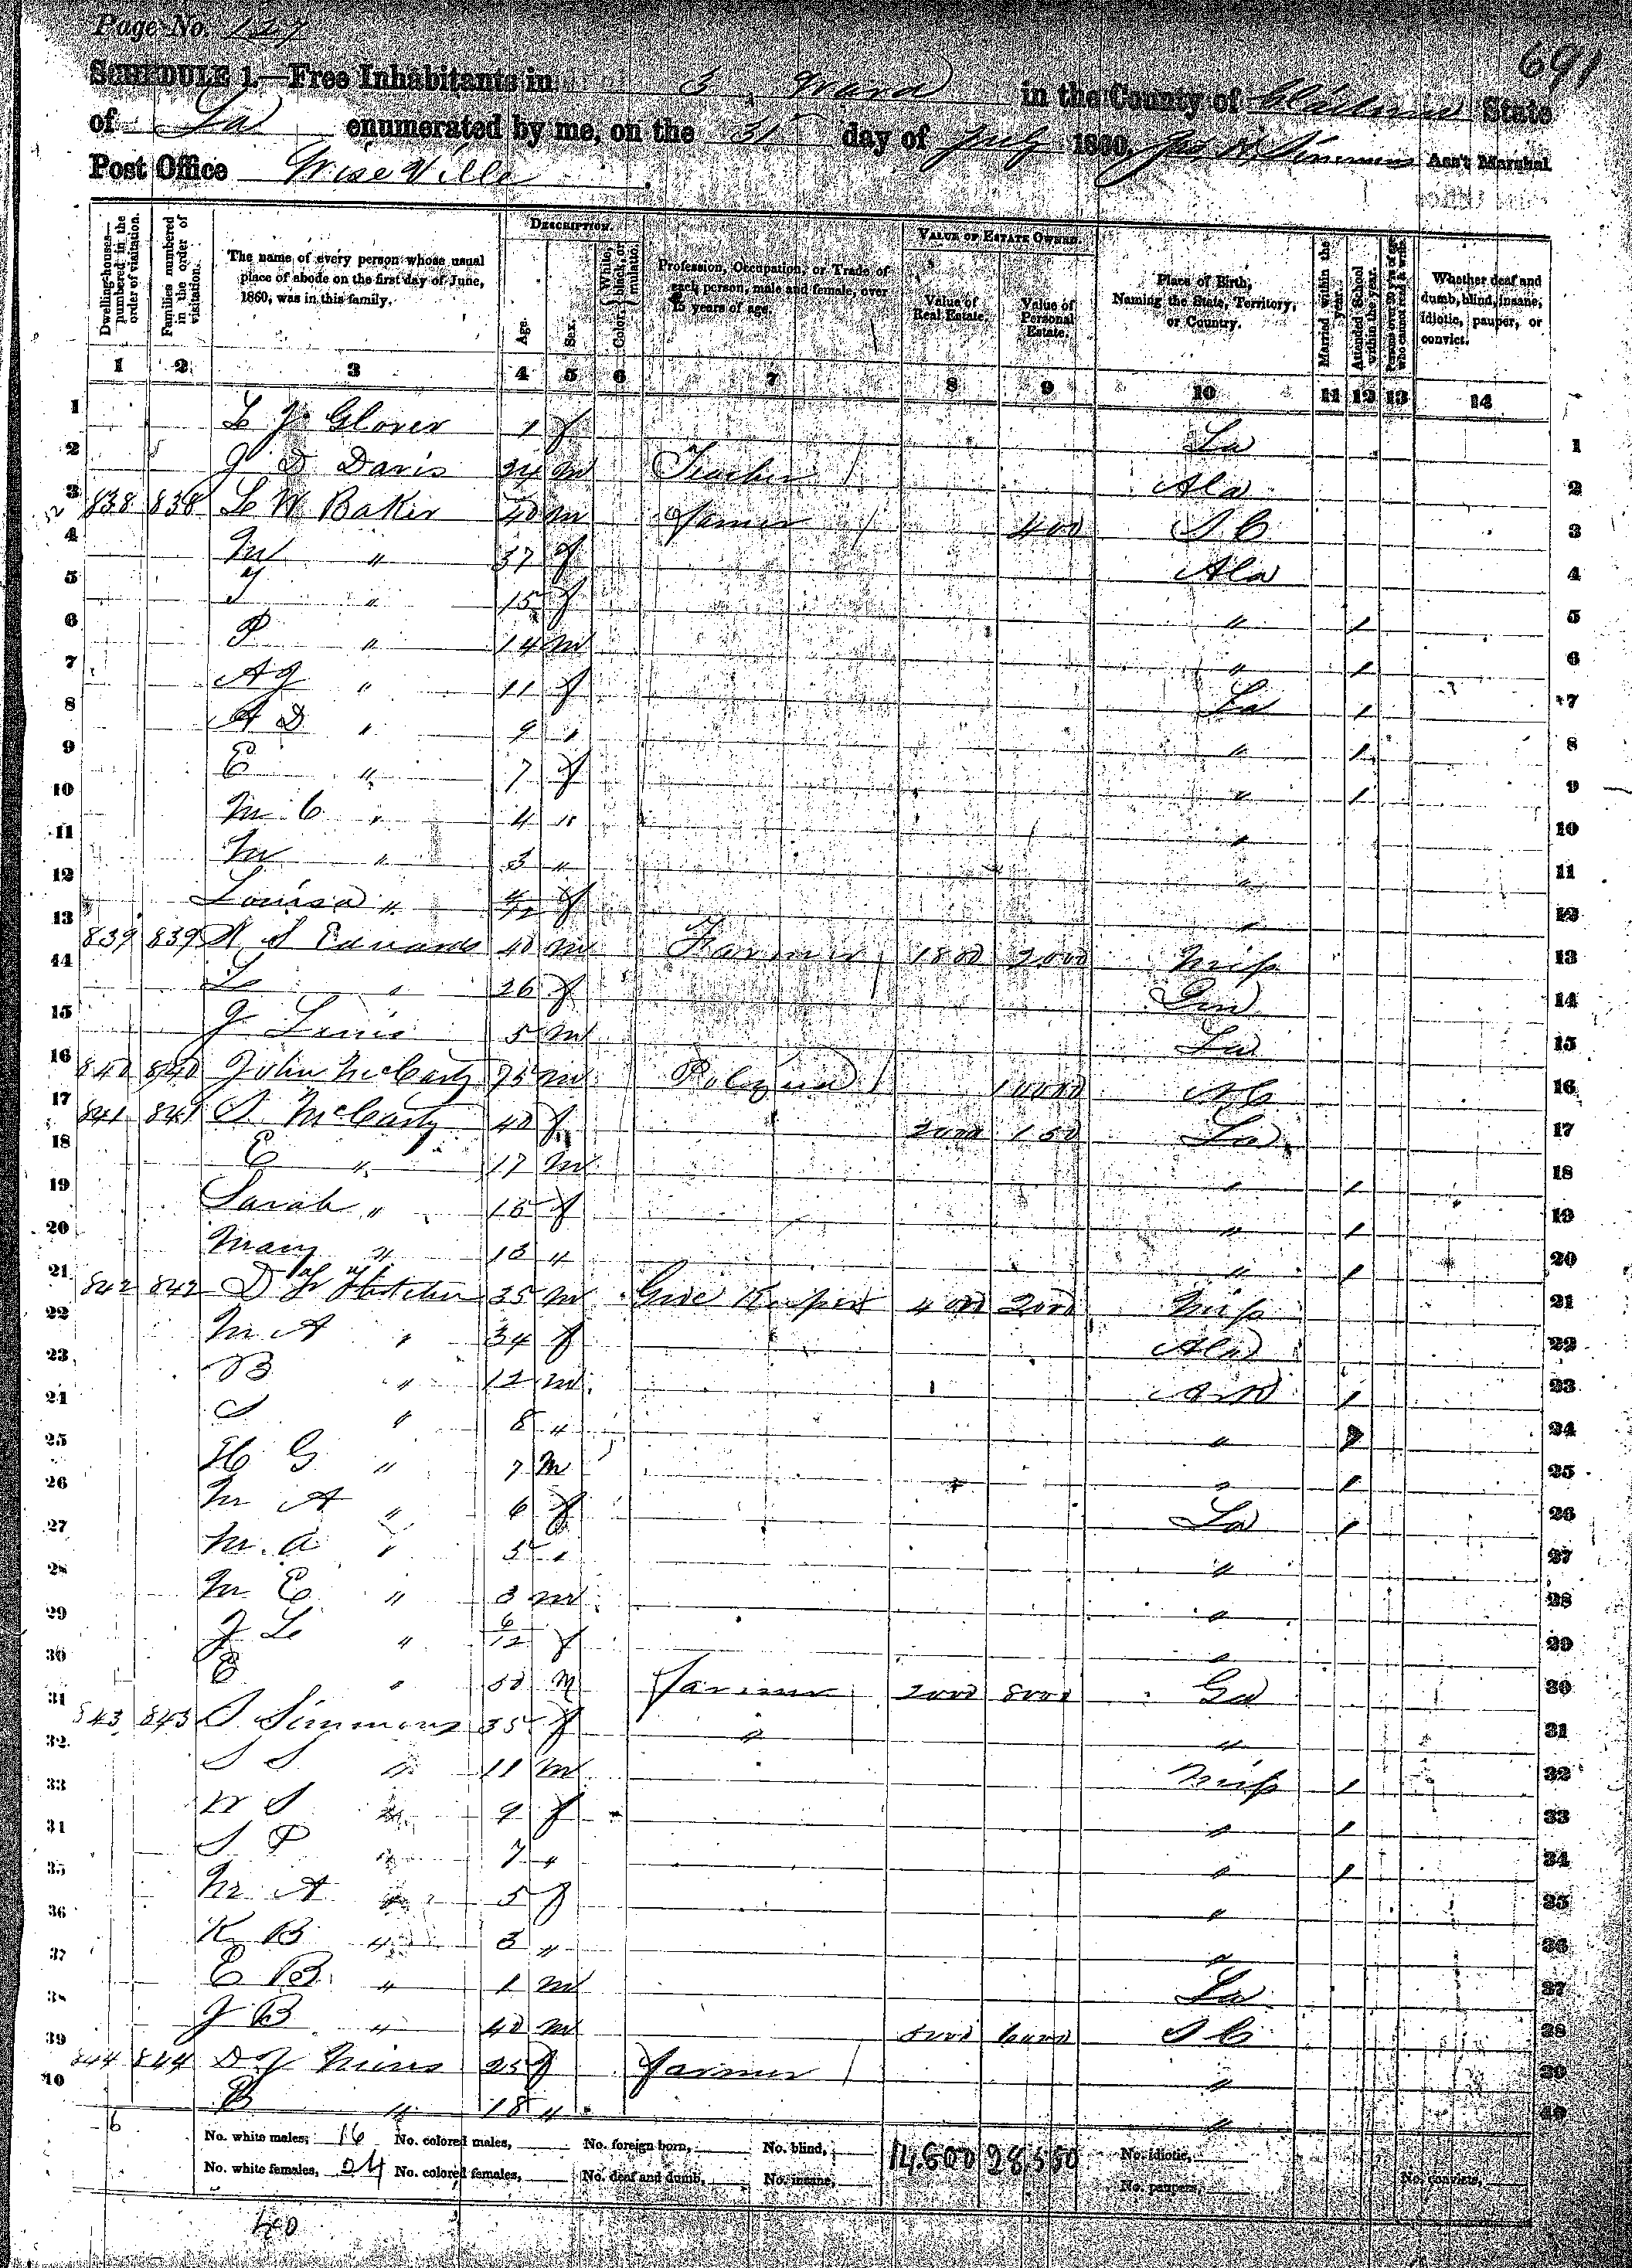 Page No. 127
691
SCHEDULE 1.—Free Inhabitants in 3 Ward in the County of Claiborne State
of La enumerated by me, on the 31 day of July 1860. Jas. R. Simmons Ass't Marshal
Post Office Wise Ville
DESCRIPTION. VALUE OF ESTATE OWNED.
Dwelling-houses—numbered in the order of visitation. Families numbered in the order of visitation. The name of every person whose usual place of abode on the first day of June, 1860, was in this family. Age. Sex. Color, White, black, or mulatto. Profession, Occupation, or Trade of each person, male and female, over 15 years of age. Value of Real Estate. Value of Personal Estate. Place of Birth, Naming the State, Territory, or Country. Married within the year. Attended School within the year. Persons over 20 y'rs of age who cannot read & write. Whether deaf and dumb, blind, insane, idiotic, pauper, or convict.
1 2 3 4 5 6 7 8 9 10 11 12 13 14
1 L J Glover 1 f La 1
2 J D Davis 24 m Teacher / Ala 2
3 838 838 L W Baker 40 m Farmer / 400 S C 3
4 M " 37 f Ala 4
5 " 15 f " / 5
6 P " 14 m " / 6
7 A J " 11 f La / 7
8 A D " 9 " " / 8
9 E " 7 f " / 9
10 M C " 4 " " 10
11 M " 3 " " 11
12 Louisa " 4/12 f " 12
13 839 839 W S Edwards 40 m Farmer / 1800 2000 Miss 13
14 L " 26 f 14
15 J Lewis 5 m La 15
16 840 840 John McCarty 75 m / 10000 N C 16
17 841 841 S McCarty 40 f 2000 150 La 17
18 E " 17 m " / 18
19 Sarah " 15 f " / 19
20 Mary " 13 " " / 20
21 842 842 D 35 m 4000 2000 Miss 21
22 M A " 34 f Ala 22
23 B " 12 m Ark / 23
24 S " 8 " " / 24
25 H G " 7 m " / 25
26 M A " 6 f La / 26
27 M. A " 5 " " 27
28 M E " 3 m " 28
29 J L " 6/12 f " 29
30 E " 50 m Farmer 2000 8000 Ga 30
31 843 843 S Simmons 35 f " " 31
32 S S " 11 m Miss / 32
33 W S " 9 f " / 33
34 S P " 7 " " / 34
35 M A " 5 f " 35
36 K B " 3 " " 36
37 E B " 1 m La 37
38 J B " 40 m 5000 6000 S C 38
39 844 844 D J Mims 25 f Farmer / " 39
40 B " 18 " " 40
6
No. white males, 16 No. colored males, No. foreign born, No. blind, 14.800 28,550 No. idiotic,
No. white females, 24 No. colored females, No. deaf and dumb, No. insane, No. paupers, No. convicts,
40